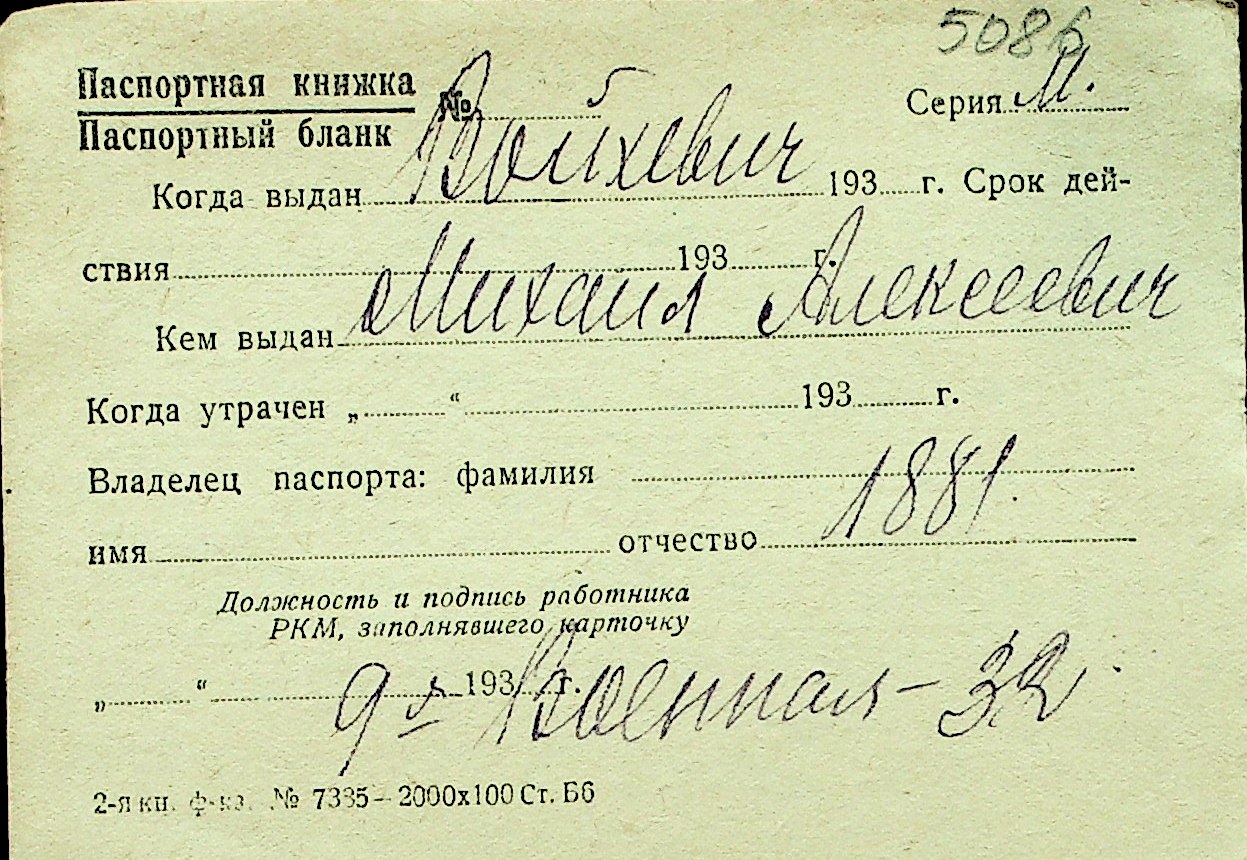 5086
Паспортная книжка
Паспортный бланк № Серия М.
Войхевич
Когда выдан 193 г. Срок дей-
ствия 193 г.
Михаил Алексеевич
Кем выдан
Когда утрачен „ “ 193 г.
Владелец паспорта: фамилия
1881.
имя отчество
Должность и подпись работника
РКМ, заполнявшего карточку
„ “ 193 г.
9я Военная - 32
2-я кн. ф-ка. № 7335—2000х100 Ст. Бб